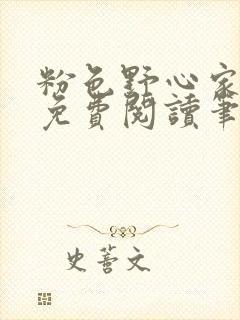 粉色野心家
免費閱讀筆
史蓍文